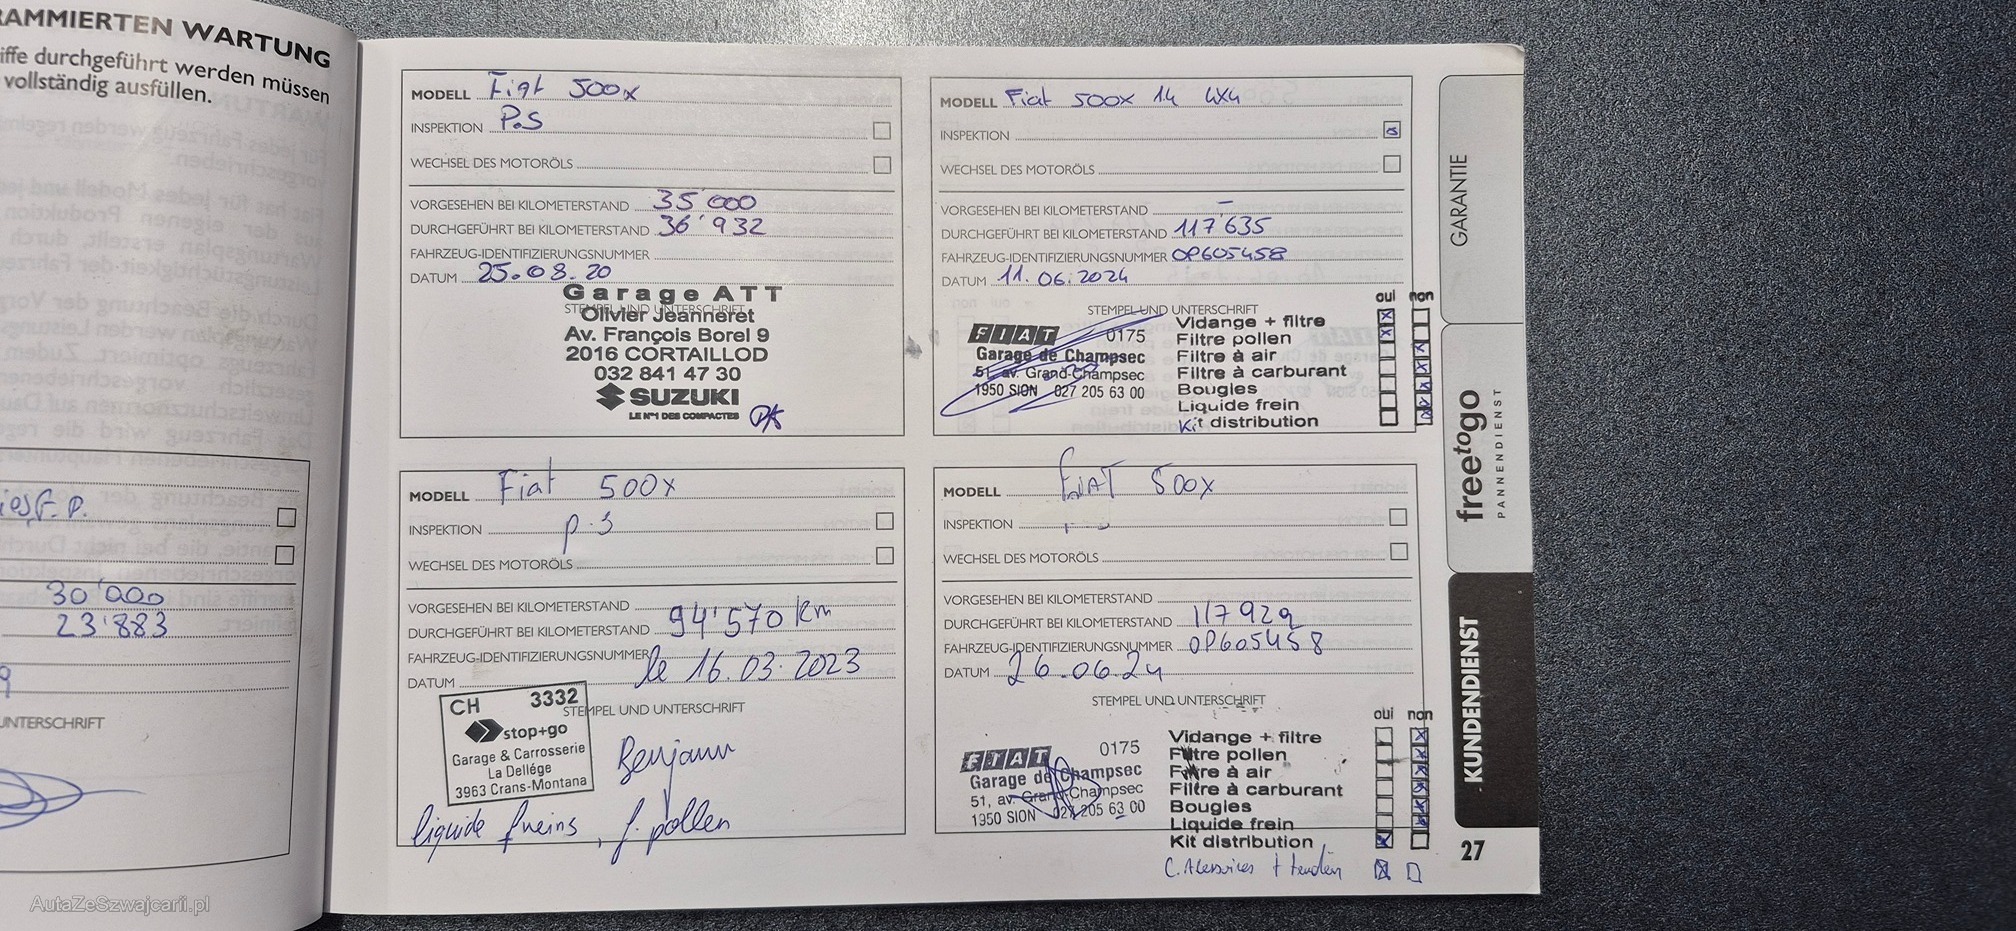 RAMMIERTEN WARTUNG
iffe durchgeführt werden müssen
vollständig ausfüllen.
F. P.
30'000
23'883
UNTERSCHRIFT
MODELL Fiat 500x
INSPEKTION P.S
WECHSEL DES MOTORÖLS
VORGESEHEN BEI KILOMETERSTAND 35'000
DURCHGEFÜHRT BEI KILOMETERSTAND 36'932
FAHRZEUG-IDENTIFIZIERUNGSNUMMER
DATUM 25.08.20
STEMPEL UND UNTERSCHRIFT
Garage ATT
Olivier Jeanneret
Av. François Borel 9
2016 CORTAILLOD
032 841 47 30
SUZUKI
LE N°1 DES COMPACTES
MODELL Fiat 500x 14 4x4
INSPEKTION
WECHSEL DES MOTORÖLS
VORGESEHEN BEI KILOMETERSTAND –
DURCHGEFÜHRT BEI KILOMETERSTAND 117'635
FAHRZEUG-IDENTIFIZIERUNGSNUMMER 0P605458
DATUM 11.06.2024
STEMPEL UND UNTERSCHRIFT
oui non
FIAT 0175
Garage de Champsec
51, av. Grand-Champsec
1950 SION 027 205 63 00
Vidange + filtre
Filtre pollen
Filtre à air
Filtre à carburant
Bougies
Liquide frein
Kit distribution
MODELL Fiat 500x
INSPEKTION p.s
WECHSEL DES MOTORÖLS
VORGESEHEN BEI KILOMETERSTAND
DURCHGEFÜHRT BEI KILOMETERSTAND 94'570 km
FAHRZEUG-IDENTIFIZIERUNGSNUMMER
DATUM le 16.03.2023
STEMPEL UND UNTERSCHRIFT
CH 3332
stop+go
Garage & Carrosserie
La Dellége
3963 Crans-Montana
Benjamin
liquide freins, f. pollen
MODELL FIAT 500x
INSPEKTION
WECHSEL DES MOTORÖLS
VORGESEHEN BEI KILOMETERSTAND
DURCHGEFÜHRT BEI KILOMETERSTAND 117929
FAHRZEUG-IDENTIFIZIERUNGSNUMMER 0P605458
DATUM 26.06.24
STEMPEL UND UNTERSCHRIFT
oui non
FIAT 0175
Garage de Champsec
51, av. Grand-Champsec
1950 SION 027 205 63 00
Vidange + filtre
Filtre pollen
Filtre à air
Filtre à carburant
Bougies
Liquide frein
Kit distribution
GARANTIE
freetogo
PANNENDIENST
KUNDENDIENST
27
AutaZeSzwajcarii.pl